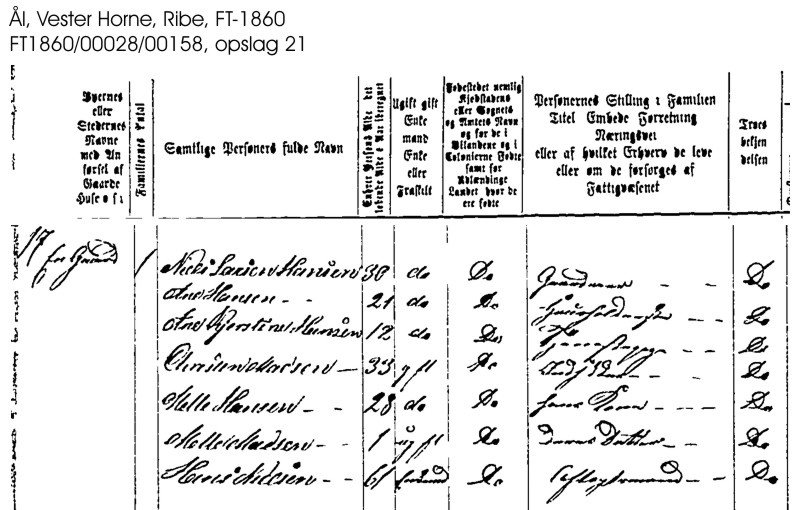 Ål, Vester Horne, Ribe, FT-1860
FT1860/00028/00158, opslag 21
Byernes eller Stedernes Navne med An førsel af Gaarde Huse o s v
Familiernes Antal
Samtlige Personers fulde Navn
Ugift gift Enke mand Enke eller Fraskilt
Fødestedet nemlig Kjøbstadens eller Sognets og Amtets Navn og for de i Bilandene og i Colonierne Fødte samt for Udlændinge Landet hvor de ere fødte
Personernes Stilling i Familien Titel Embede Forretning Næringsvei eller af hvilket Erhverv de leve eller om de forsørges af Fattigvæsenet
Troes bekjen delsen
17
en Gaard 1 Niels Hansen 30 do Do Gaardmand - - Do
Ane Hansen - - 21 do Do Do
Ane Kjerstine Hansen 12 do Do Do
Christen Madsen - 33 gift Do - - Do
Mette Hansen - - 28 do Do hans Kone - - - Do
Mette Madsen - 1 ugift Do deres Datter - - Do
Hans Nielsen - 61 Do Aftægtsmand - - Do